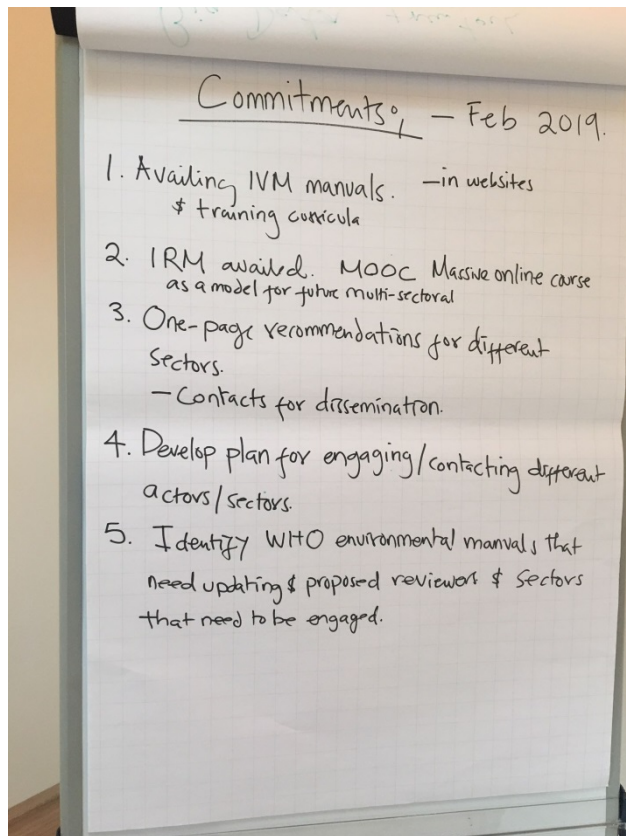 Commitments; – Feb 2019.
1. Availing IVM manuals. – in websites
& training curricula
2. IRM availed. MOOC Massive online course
as a model for future multi-sectoral
3. One-page recommendations for different
Sectors.
– Contacts for dissemination.
4. Develop plan for engaging/contacting different
actors/sectors.
5. Identify WHO environmental manuals that
need updating & proposed reviewers & Sectors
that need to be engaged.